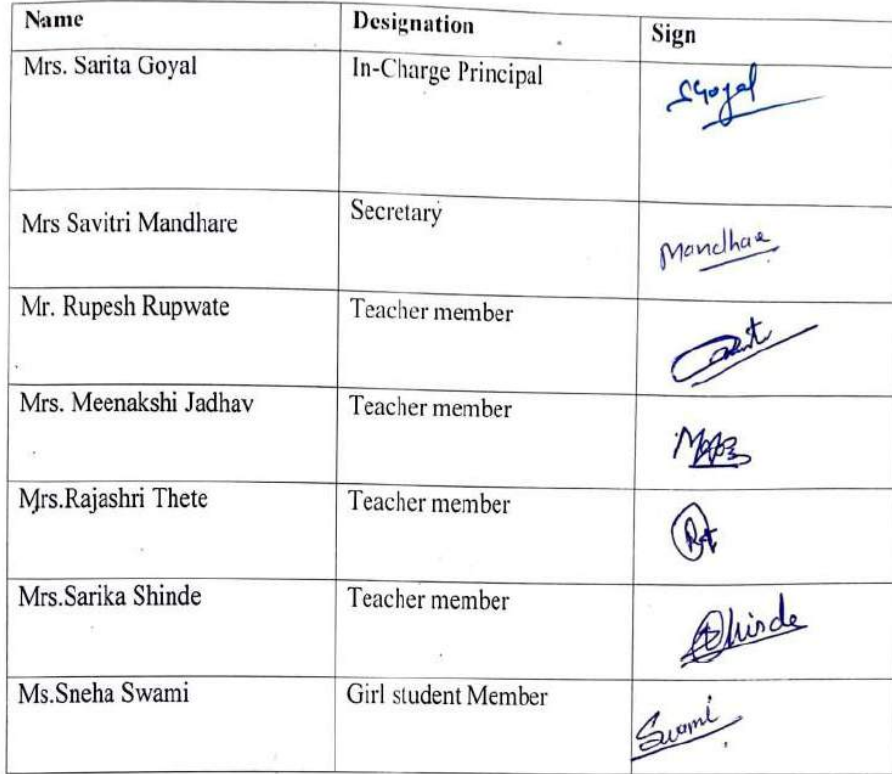 Name Designation Sign
Mrs. Sarita Goyal In-Charge Principal SGoyal
Mrs Savitri Mandhare Secretary Mandhare
Mr. Rupesh Rupwate Teacher member
Mrs. Meenakshi Jadhav Teacher member
Mrs.Rajashri Thete Teacher member
Mrs.Sarika Shinde Teacher member Shinde
Ms.Sneha Swami Girl student Member Swami